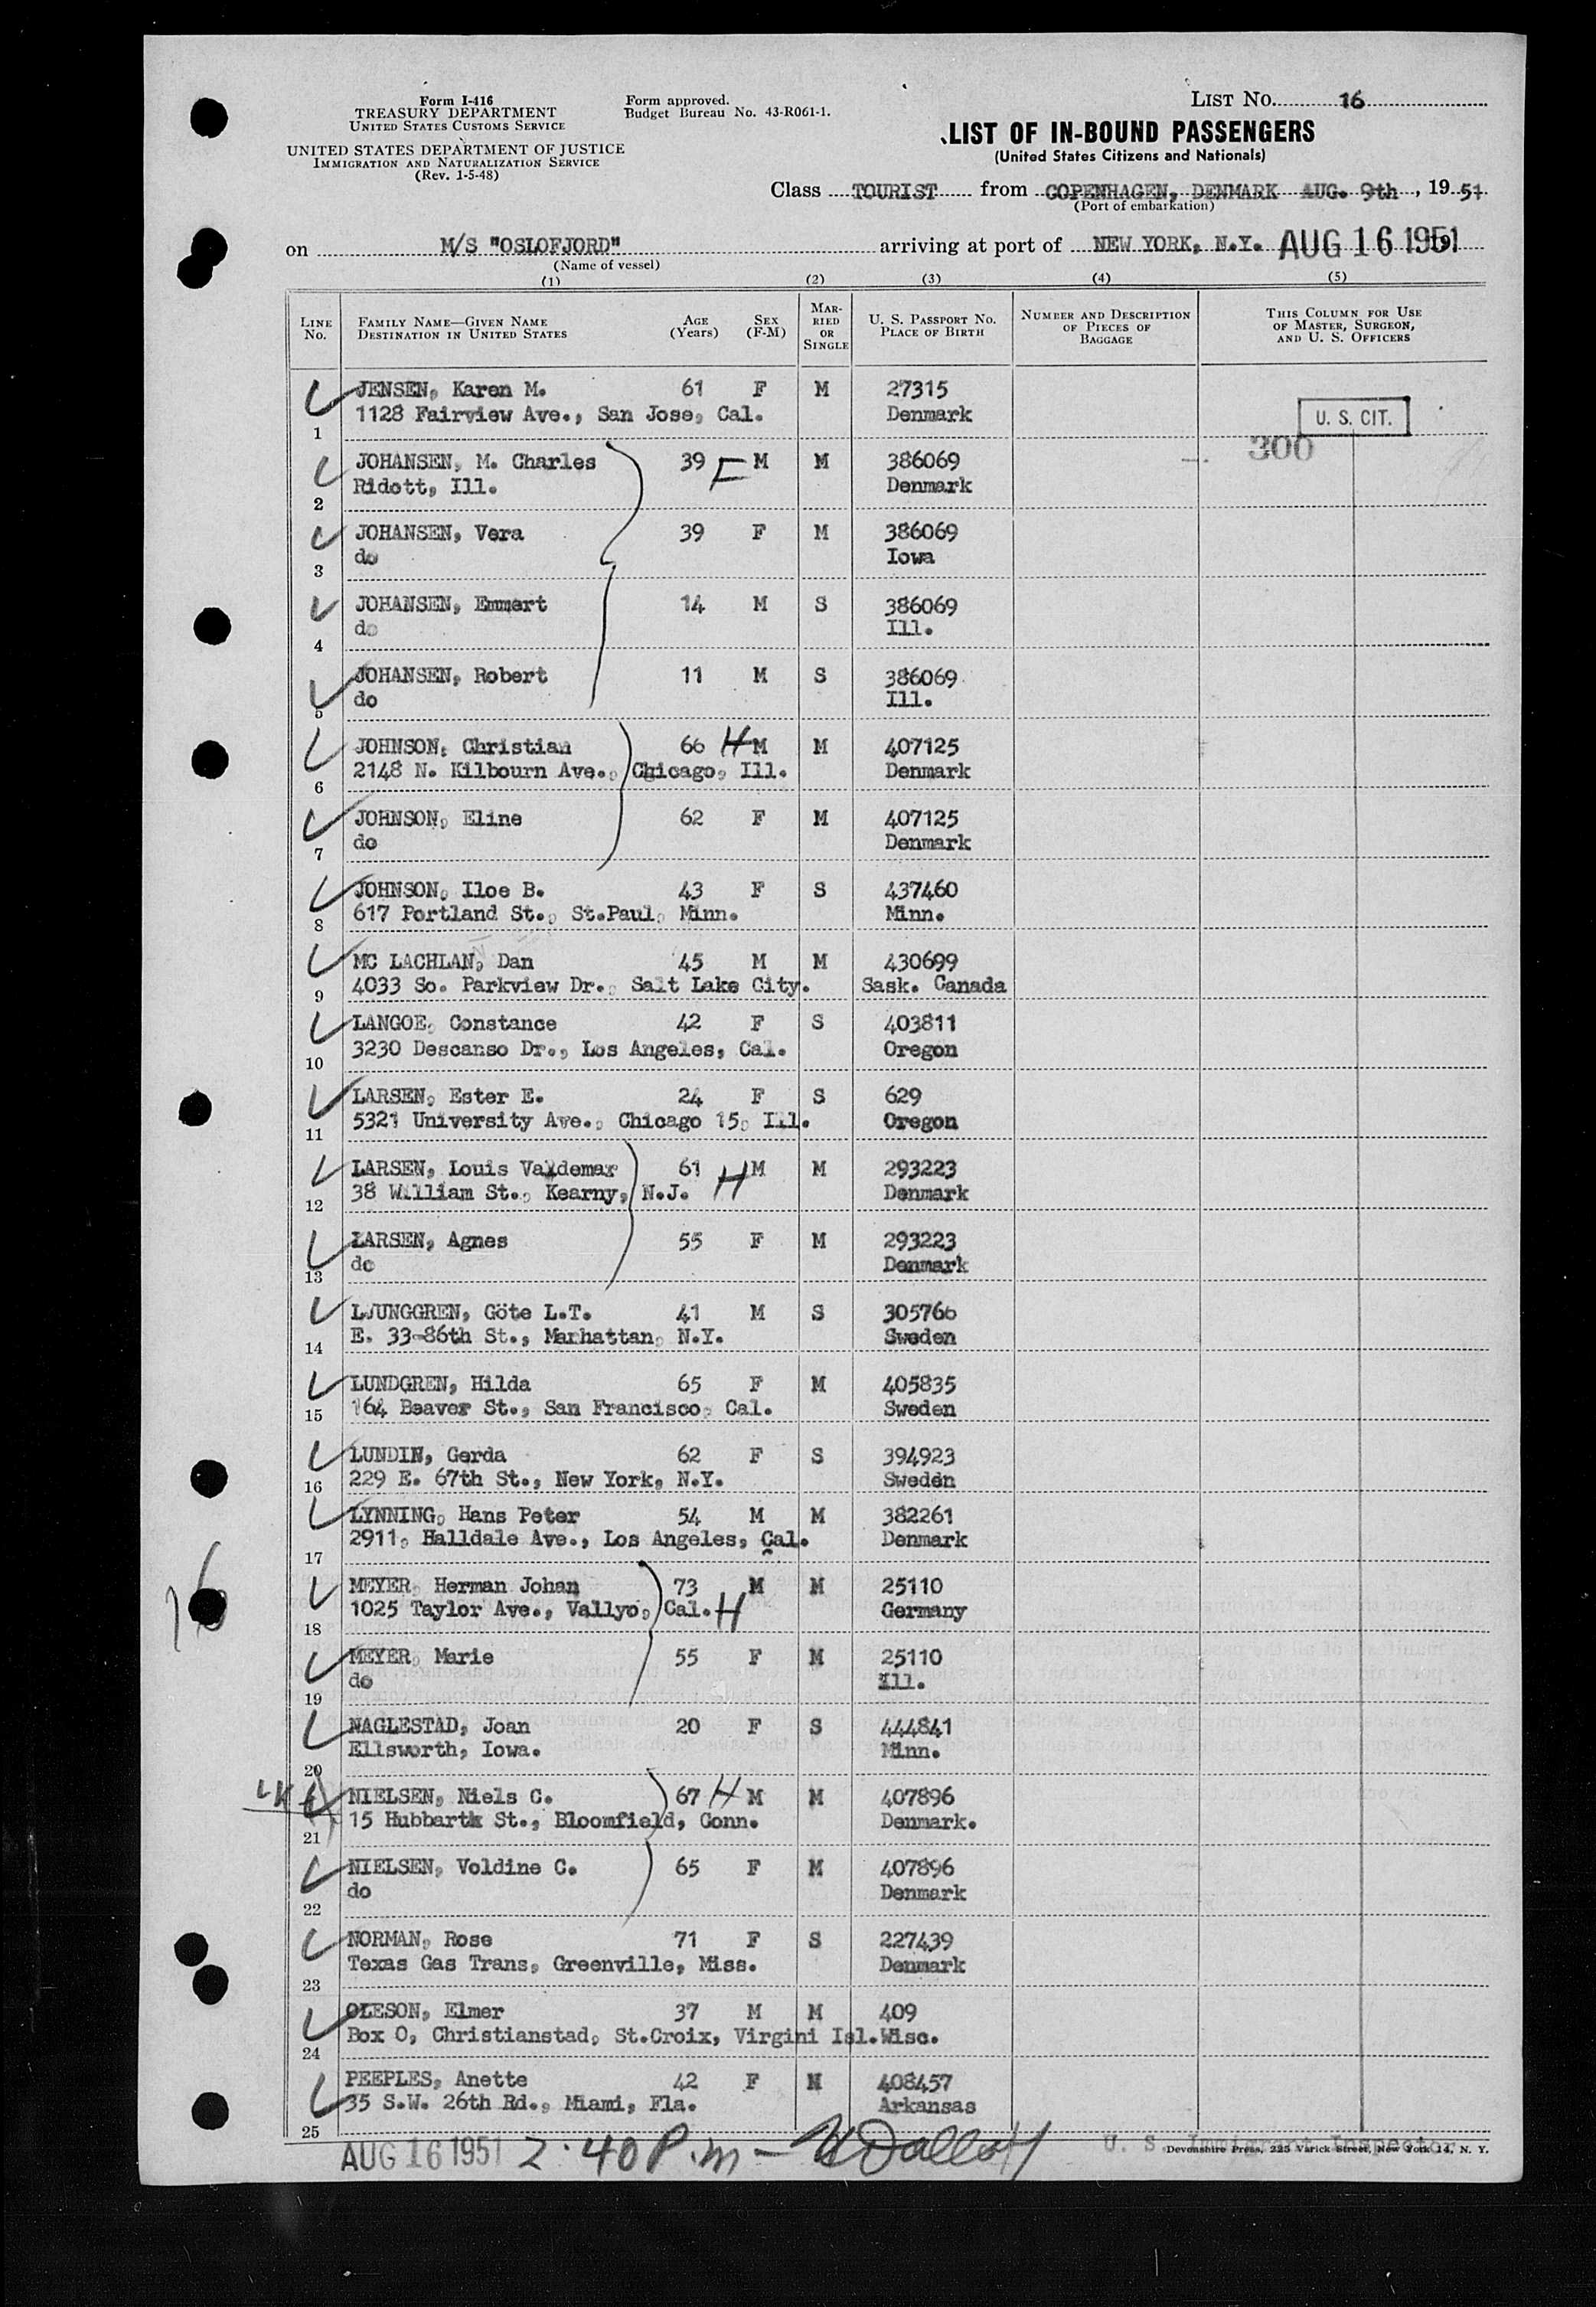 Form I-416
TREASURY DEPARTMENT
UNITED STATES CUSTOMS SERVICE
UNITED STATES DEPARTMENT OF JUSTICE
IMMIGRATION AND NATURALIZATION SERVICE
(Rev. 1-5-48)
Form approved.
Budget Bureau No. 43-R061-1.
LIST NO. 16
LIST OF IN-BOUND PASSENGERS
(United States Citizens and Nationals)
Class TOURIST from COPENHAGEN, DENMARK AUG. 9th, 19 51
(Port of embarkation)
on M/S "OSLOFJORD" arriving at port of NEW YORK, N.Y. AUG 16 1951
(Name of vessel)
(1) (2) (3) (4) (5)
LINE NO. FAMILY NAME—GIVEN NAME DESTINATION IN UNITED STATES AGE (Years) SEX (F-M) MARRIED OR SINGLE U. S. PASSPORT NO. PLACE OF BIRTH NUMBER AND DESCRIPTION OF PIECES OF BAGGAGE THIS COLUMN FOR USE OF MASTER, SURGEON, AND U. S. OFFICERS
JENSEN, Karen M. 61 F M 27315
1128 Fairview Ave., San Jose, Cal. Denmark
U. S. CIT.
1
300
JOHANSEN, M. Charles 39 F M M 386069
Ridott, Ill. Denmark
2
JOHANSEN, Vera 39 F M 386069
do Iowa
3
JOHANSEN, Emmert 14 M S 386069
do Ill.
4
JOHANSEN, Robert 11 M S 386069
do Ill.
5
JOHNSON, Christian 66 H M M 407125
2148 N. Kilbourn Ave., Chicago, Ill. Denmark
6
JOHNSON, Eline 62 F M 407125
do Denmark
7
JOHNSON, Iloe B. 43 F S 437460
617 Portland St., St.Paul, Minn. Minn.
8
MC LACHLAN, Dan 45 M M 430699
4033 So. Parkview Dr., Salt Lake City. Sask. Canada
9
LANGOE, Constance 42 F S 403811
3230 Descanso Dr., Los Angeles, Cal. Oregon
10
LARSEN, Ester E. 24 F S 629
5321 University Ave., Chicago 15, Ill. Oregon
11
LARSEN, Louis Valdemar 61 H M M 293223
38 William St., Kearny, N.J. Denmark
12
LARSEN, Agnes 55 F M 293223
do Denmark
13
LJUNGGREN, Göte L.T. 41 M S 305766
E. 33-86th St., Manhattan, N.Y. Sweden
14
LUNDGREN, Hilda 65 F M 405835
164 Beaver St., San Francisco, Cal. Sweden
15
LUNDIN, Gerda 62 F S 394923
229 E. 67th St., New York, N.Y. Sweden
16
LYNNING, Hans Peter 54 M M 382261
2911, Halldale Ave., Los Angeles, Cal. Denmark
17
16
MEYER, Herman Johan 73 M M 25110
1025 Taylor Ave., Vallyo, Cal. H Germany
18
MEYER, Marie 55 F M 25110
do Ill.
19
NAGLESTAD, Joan 20 F S 444841
Ellsworth, Iowa. Minn.
20
NIELSEN, Niels C. 67 H M M 407896
15 Hubbartk St., Bloomfield, Conn. Denmark.
21
NIELSEN, Voldine C. 65 F M 407896
do Denmark
22
NORMAN, Rose 71 F S 227439
Texas Gas Trans, Greenville, Miss. Denmark
23
OLESON, Elmer 37 M M 409
Box O, Christianstad, St.Croix, Virgini Isl. Wisc.
24
PEEPLES, Anette 42 F M 408457
35 S.W. 26th Rd., Miami, Fla. Arkansas
25
AUG 16 1951 2:40 P.m - U. S. Immigrant Inspector
Devonshire Press, 225 Varick Street, New York 14, N. Y.